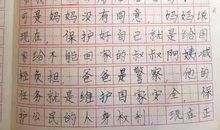 可是妈妈没有同意 妈妈说
现在，保护好自己就是给国
家给不能回家的叔叔阿姨减
轻负担 爸爸是警察，他的
任务就是维护国家安全 保
护公民的人身权利 现在正